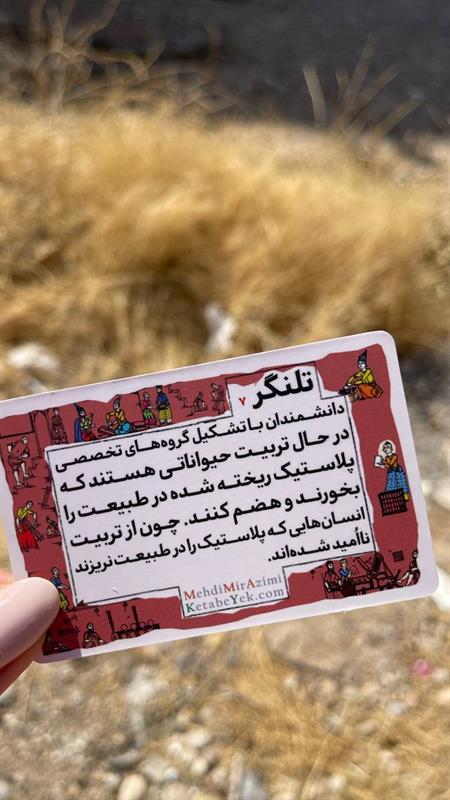 تلنگر ۷
دانشمندان با تشکیل گروه‌های تخصصی
در حال تربیت حیواناتی هستند که
پلاستیک ریخته شده در طبیعت را
بخورند و هضم کنند. چون از تربیت
انسان‌هایی که پلاستیک را در طبیعت نریزند
نااُمید شده‌اند.
MehdiMirAzimi
KetabeYek.com